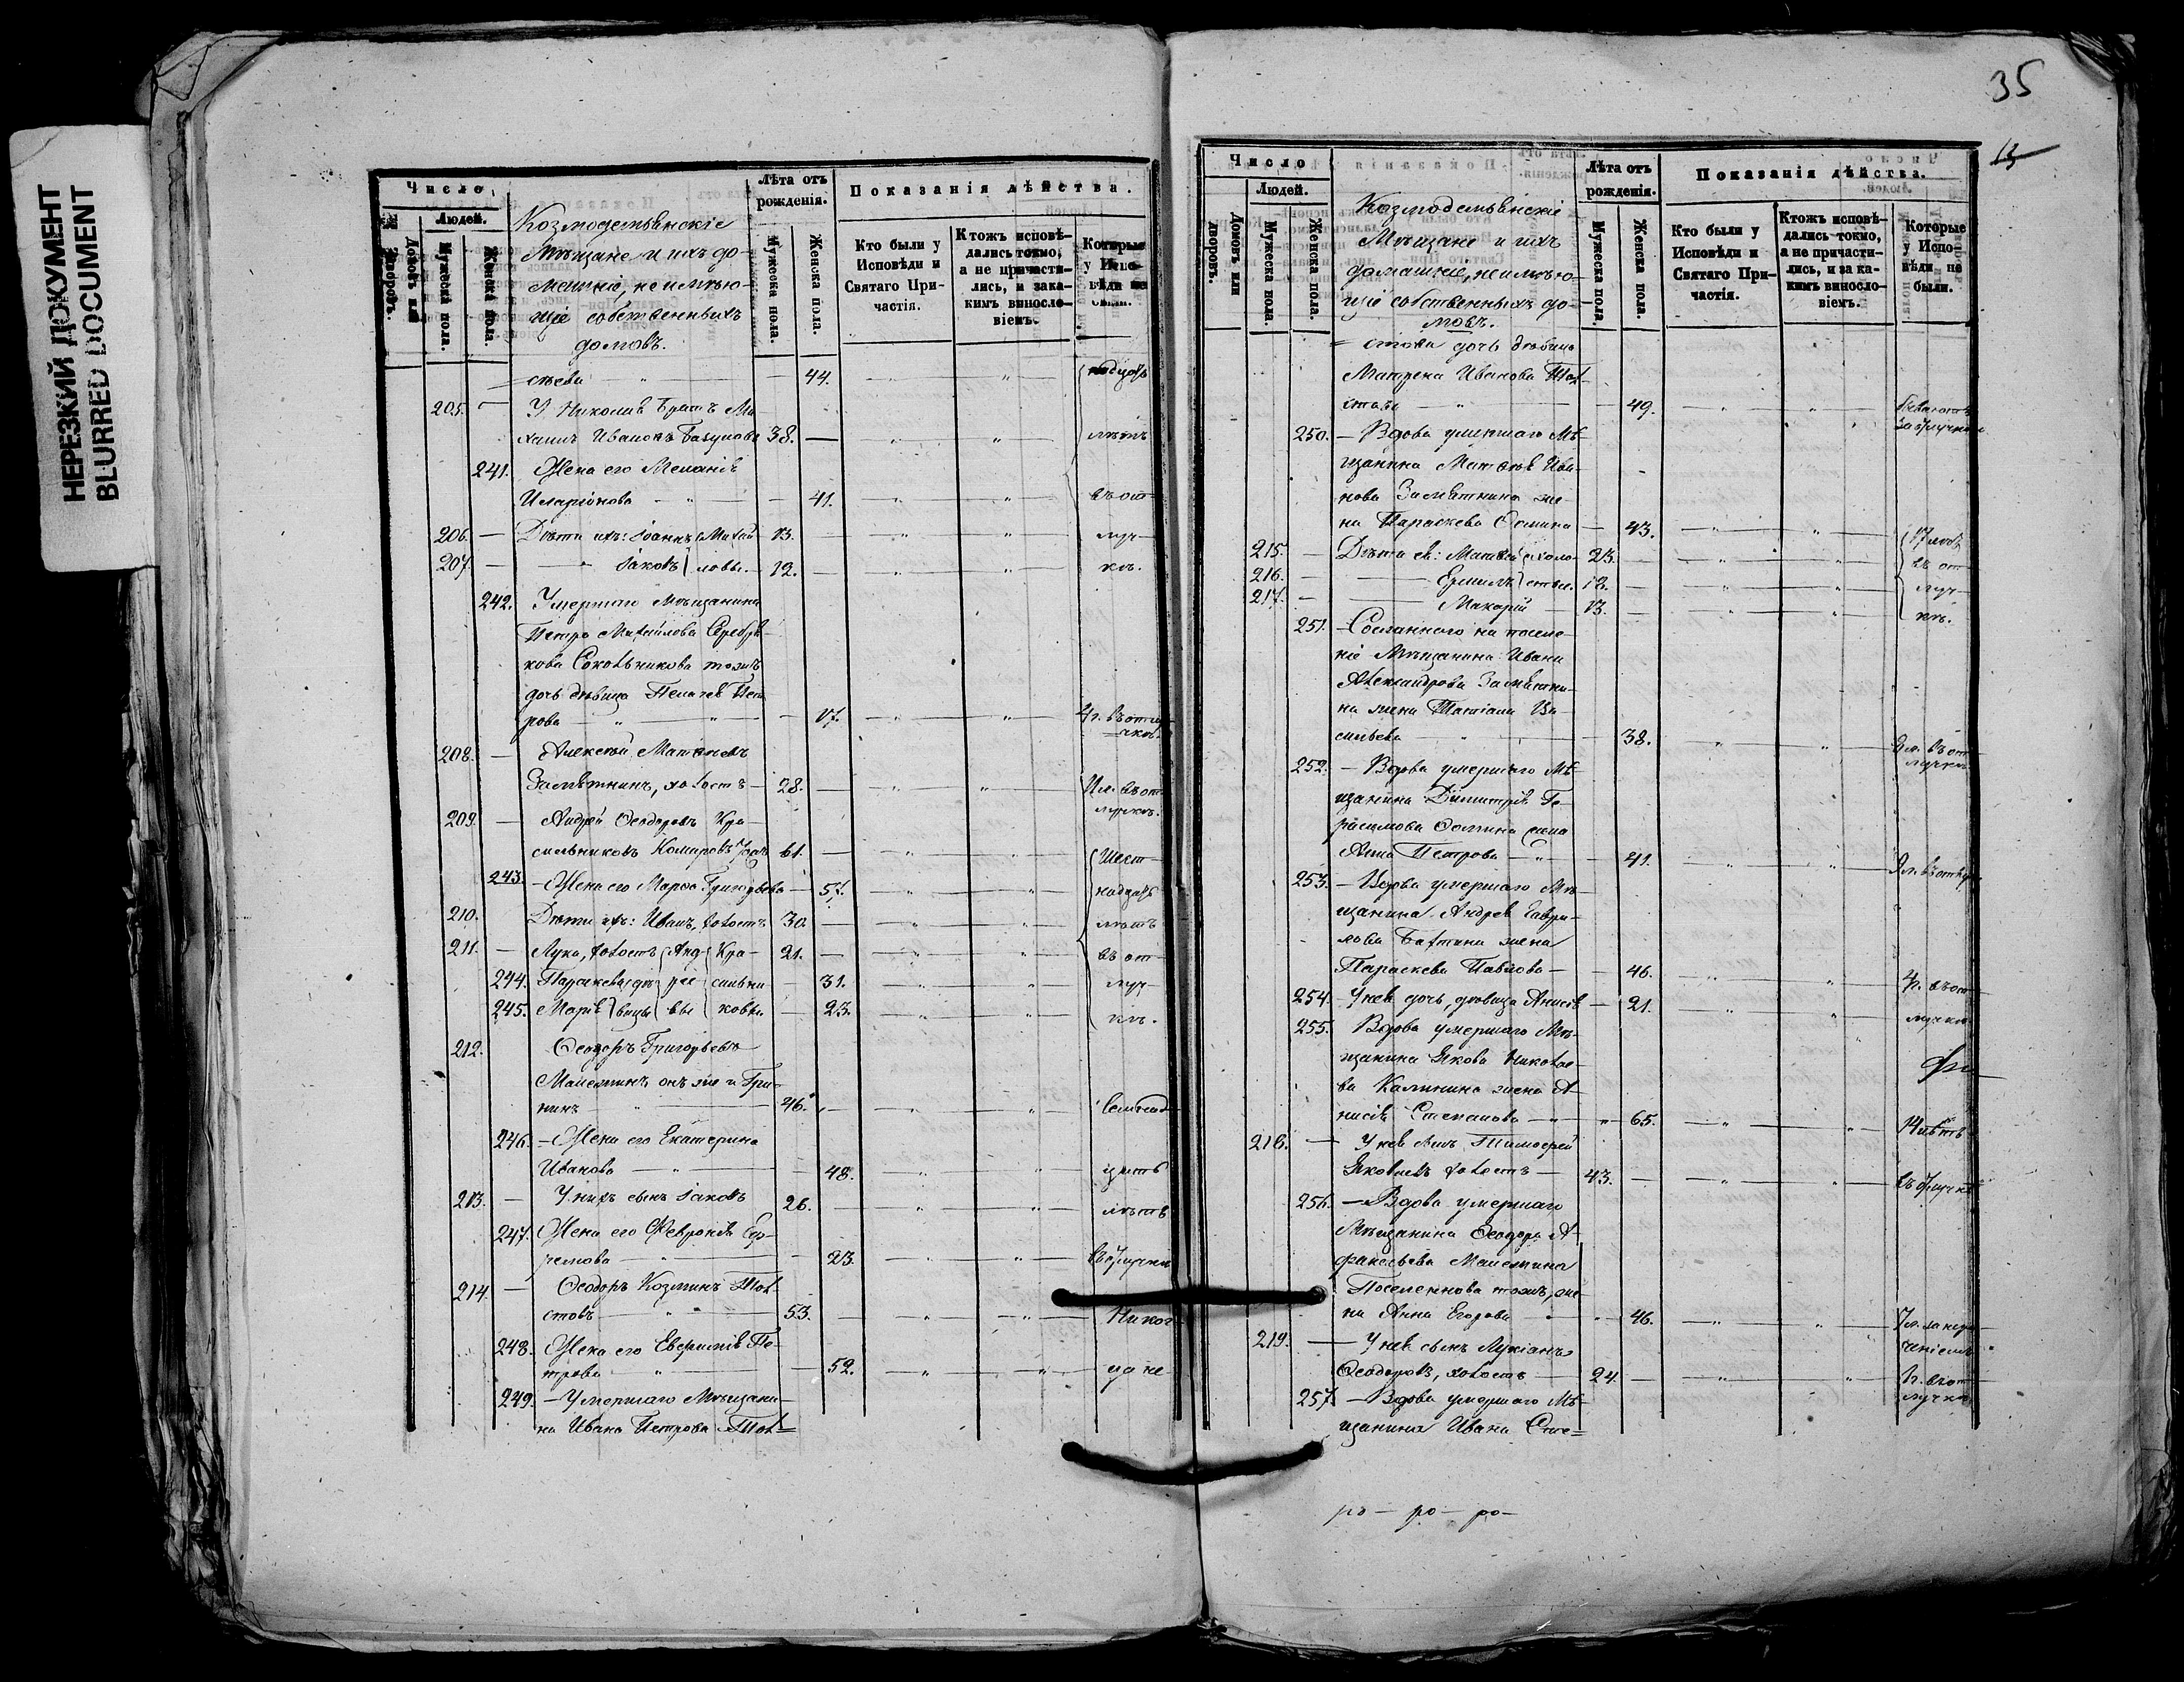 НЕРЕЗКИЙ ДОКУМЕНТ
BLURRED DOCUMENT
Число
Людей.
Домовъ или дворовъ.
Мужеска пола.
Женска пола.
Козмодемьянскіе
Мѣщане и ихъ до-
машніе, не имѣю-
щіе собственныхъ
домовъ.
Лѣта отъ рожденія.
Мужеска пола.
Женска пола.
Показанія дѣйства.
Кто были у Исповѣди и Святаго Причастія.
Ктожъ исповѣ-дались токмо, а не причасти-лись, и зака-кимъ виносло-віемъ.
Которые у Испо-вѣди не были.
сѣева — 44. надцать
205. — У Николая братъ Ми-
хаилъ Ивановъ 38. — лѣтъ
241. Жена его Меланія
Иларіонова — 41. въ от-
206. — Дѣти ихъ: Іоаннъ Михай 13. — луч-
207. — Іаковъ ловы. — 12. — кѣ.
242. Умершаго мѣщанина
Петра Михайлова Серебря-
кова Сокольникова тожъ
дочь дѣвица Пелагея Пет-
рова — 17. 4 г. въ отлу-
чкѣ.
208. — Алексѣй Матвѣевъ
Замятнинъ, холостъ — 28. — въ от-
лучкѣ.
209. — Андрей Ѳеодоровъ Кра-
сильниковъ Комаровъ тожъ 61. — Шест-
243. — Жена его Марѳа Григорьева — 57. надцать
210. Дѣти ихъ: Иванъ, холостъ 30. — лѣтъ
211. — Лука, холостъ Анд- Кра- 21. — въ от-
244. Параскева дѣ- рее- сильни- — 31. луч-
245. Марія вицы вы ковы — 23. кѣ.
212. Ѳеодоръ Григорьевъ
онъ же и Гри-
нинъ — 46.
246. — Жена его Екатерина
Иванова — 48. цать
213. — У нихъ сынъ Іаковъ 26. — лѣтъ
247. Жена его Февронія Еф-
ремова — 23. въ отлучкѣ
214. — Ѳеодоръ Козминъ Тол-
стовъ — 53. — Никог-
248. Жена его Евфимія Пе-
трова — 52. да не
249. — Умершаго мѣщани-
на Ивана Петрова Тол-
35
Число
Людей.
Домовъ или дворовъ.
Мужеска пола.
Женска пола.
Козмодемьянскіе
Мѣщане и ихъ
домашніе, не имѣю-
щіе собственныхъ до-
мовъ.
Лѣта отъ рожденія.
Мужеска пола.
Женска пола.
Показанія дѣйства.
Кто были у Исповѣди и Святаго При-частія.
Ктожъ исповѣ-дались токмо, а не причасти-лись, и за ка-кимъ виносло-віемъ.
Которые у Испо-вѣди не были.
стова дочь дѣвица
Матрена Иванова Тол-
стова — 49.
250. — Вдова умершаго мѣ-
щанина Матвѣя Ива-
нова Замятнина же-
на Параскева Ѳомина — 43.
215. — Дѣти ея: Матвѣй холо- 23. —
216. — Ермилъ стые. 18. — въ от-
217. — Макарій 13. — луч-
кѣ.
251. — Сосланнаго на поселе-
ніе мѣщанина Ивана
Александрова Замятни-
на жена Татіана Ва-
сильева — 38. въ от-
лучкѣ
252. — Вдова умершаго мѣ-
щанина Димитрія Ге-
расимова Ѳомина жена
Анна Петрова — 41.
253. — Вдова умершаго мѣ-
щанина Андрея Гаври-
лова жена
Параскева Павлова — 46. въ от-
254. — У нея дочь, дѣвица Анисія — 21. лучкѣ
255. Вдова умершаго мѣ-
щанина Якова Николае-
ва Калинина жена А-
нисія Степанова — 65. 14 лѣтъ
218. — У нея сынъ Тимоѳей
Яковлевъ холостъ — 43. — въ отлучкѣ
256. — Вдова умершаго
мѣщанина Ѳеодора А-
фанасьева
Поселеннова тожъ, же-
на Анна Егорова — 46.
219. — У нея сынъ Лукіанъ
Ѳеодоровъ, холостъ — 24. — въ от-
лучкѣ
257. — Вдова умершаго мѣ-
щанина Ивана Сте-
ро — ро — ро —